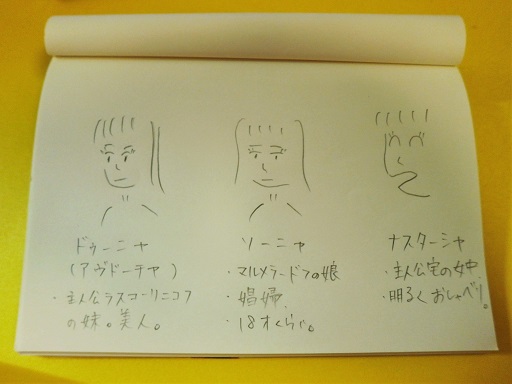 ドゥーニャ
(アヴドーチャ)
・主人公ラスコーリニコフ
の妹。美人。
ソーニャ
・マルメラードフの娘
・娼婦.
・18才くらい。
ナスターシャ
・主人公宅の女中.
・明るくおしゃべり。